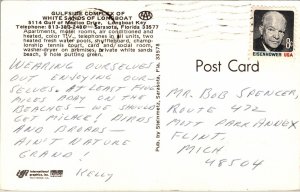 GULFSIDE COMPLEX OF
WHITE SANDS OF LONGBOAT
5114 Gulf of Mexico Drive, Longboat Key
Telephone: 813-383-2480 Sarasota, Florida 33577
Apartments, motel rooms, air conditioned and
heated, color TV, kitchens in all units, two
heated fresh water pools, shuffleboard, champ-
ionship tennis court, card and social room,
washer-dryer on premises, private white sands
beach, 9 hole putting green.
AAA
EISENHOWER · USA
8c
WEARING OURSELVES
OUT ENJOYING OUR-
SELVES. AT LEAST FIVE
MILES A DAY ON THE
BEACHES — WE SHOULD
GET MILAGE! BIRDS
AND BROADS —
AIN'T NATURE
GRAND!
KELLY
Post Card
MR. BOB SPENCER
ROUTE 472
MITT PARK ANNEX
FLINT,
MICH
48504
Pub. by Steinmetz, Sarasota, Fla. 33578
international graphics, inc.